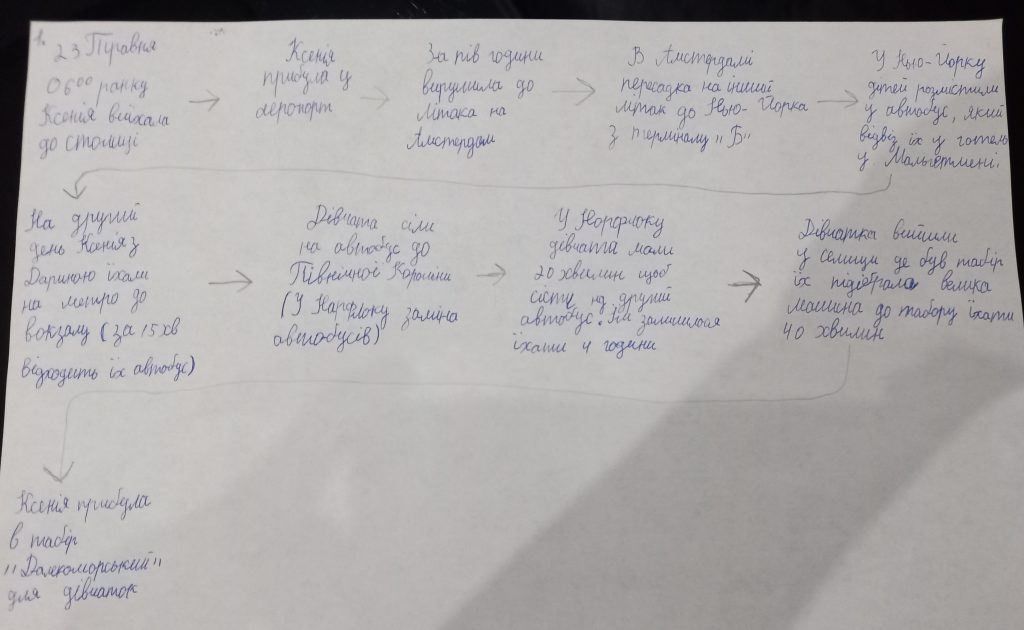 1.
23 Травня
06⁰⁰ ранку
Ксенія виїхала
до столиці
Ксенія
прибула у
аеропорт
За пів години
вирушила до
літака на
Амстердам
В Амстердамі
пересадка на інший
літак до Нью-Йорка
з терміналу "Б"
У Нью-Йорку
дітей розмістили
у автобус, який
відвіз їх у готель
у Мангетмені.
На другий
день Ксенія з
Дариною їхали
на метро до
вокзалу (за 15 хв
відходить їх автобус)
Дівчата сіли
на автобус до
Північної Кароліни
(У Норфлоку заміна
автобусів)
У Норфлоку
дівчата мали
20 хвилин щоб
сісти на другий
автобус. Їм залишилося
їхати 4 години
Дівчатка вийшли
у селищі де був табір
їх підібрала велика
машина до табору їхати
40 хвилин
Ксенія прибула
в табір
"Далекоморський"
для дівчаток